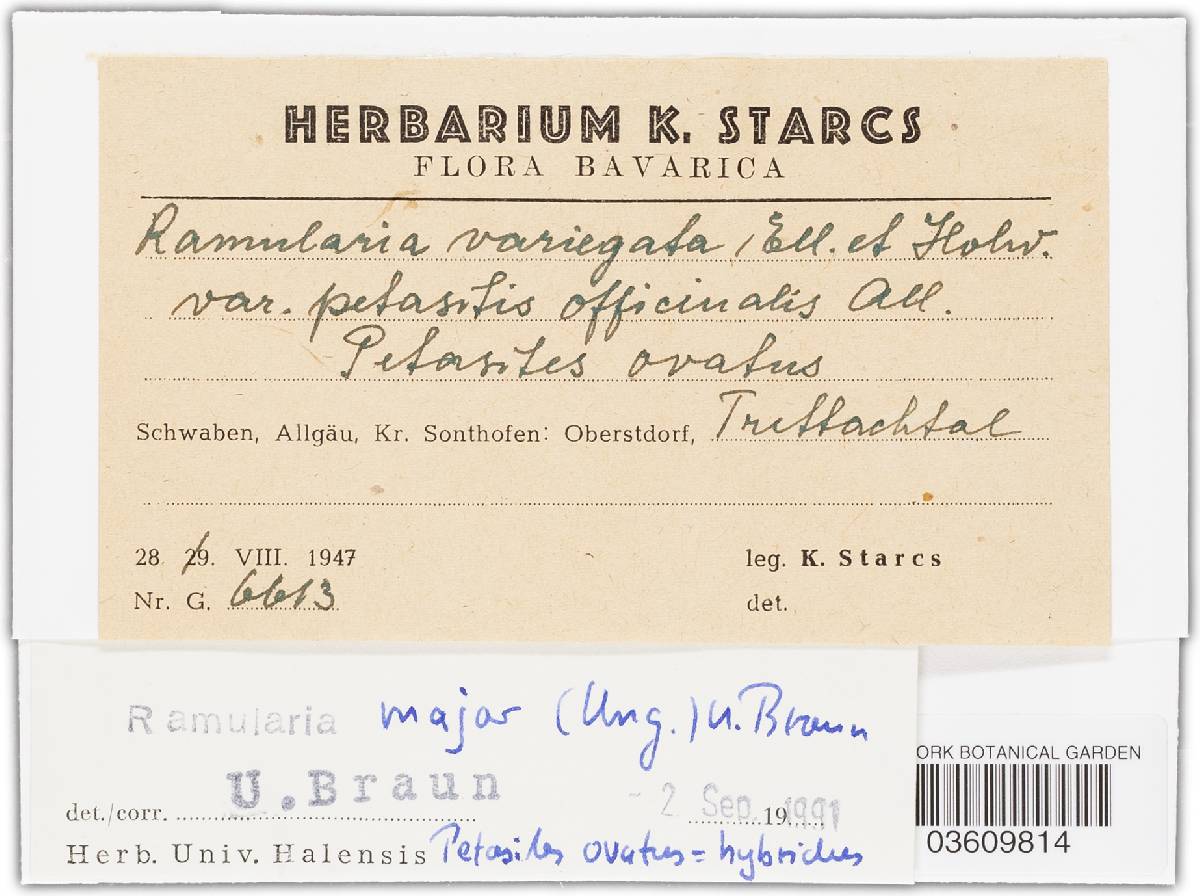 HERBARIUM K. STARCS
FLORA BAVARICA
Ramularia variegata Ell. et Holw.
var. petasitis officinalis All.
Petasites ovatus
Schwaben, Allgäu, Kr. Sonthofen: Oberstdorf, Trettachtal
28 /9. VIII. 1947
leg. K. Starcs
Nr. G. 6613
det.
Ramularia major (Ung.) U. Braun
U. Braun
det./corr.
- 2 Sep. 19 1991
Herb. Univ. Halensis Petasites ovatus = hybridus
ORK BOTANICAL GARDEN
03609814